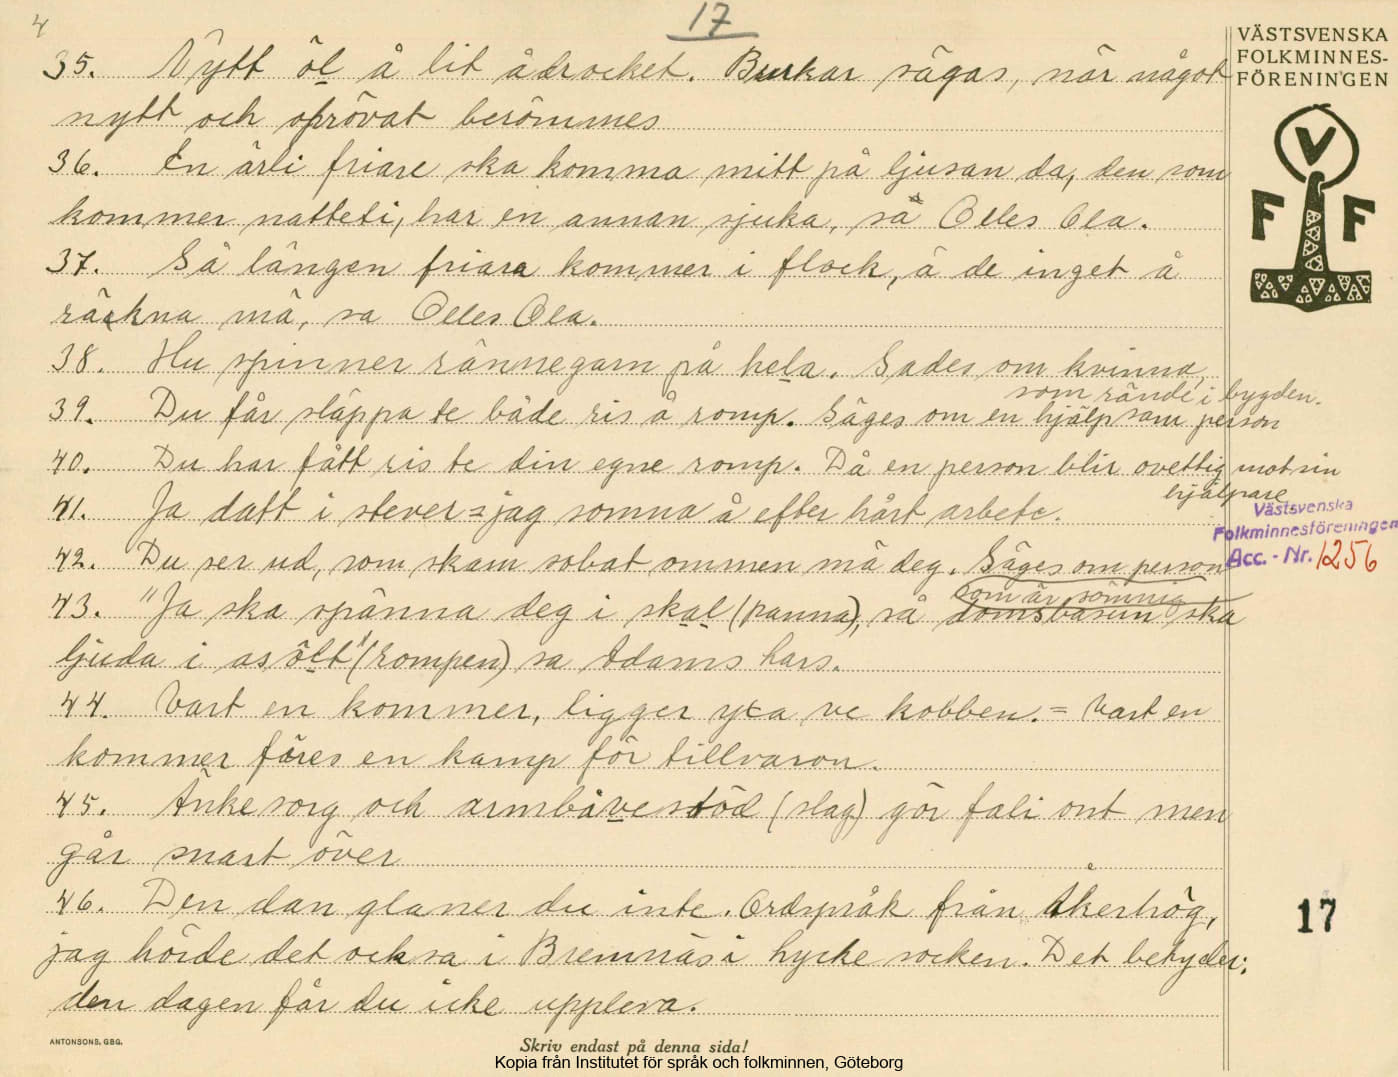 4
17
VÄSTSVENSKA
FOLKMINNES-
FÖRENINGEN
V
F F
35. Nytt öl å lit ådrocket. Burkar sägas, när något
nytt och oprövat berömmes
36. En ärli friare ska komma mitt på ljusan da, den som
kommer natteti, har en annan sjuka, sa Olles Ola.
37. Så längen friara kommer i flock, ä de inget å
räkna mä, sa Olles Ola.
38. Hu spinner rännegarn på hela. Sades om kvinna,
som rände i bygden.
39. Du får släppa te både ris å romp. Säges om en hjälpsam person
40. Du har fått ris te din egne romp. Då en person blir ovettig mot sin
hjälpare
41. Ja datt i stever = jag somna å efter hårt arbete.
Västsvenska
Folkminnesföreningen
Acc. - Nr. 1256
42. Du ser ud, som skam sobat ommen mä deg. Säges om person
som är sömnig
43. "Ja ska spänna deg i skal (panna), så domsbasun ska
ljuda i asölt" (rompen) sa Adams Lars.
44. Vart en kommer, ligger yxa ve kobben. = Vart en
kommer föres en kamp för tillvaron.
45. Änkesorg och armbåvestöd (slag) gör fali ont men
går snart över
46. Den dan glaner du inte. Ordspråk från Åkerhög,
jag hörde det också i Bremnäs i Lycke socken. Det betyder:
den dagen får du icke uppleva.
17
ANTONSONS, GBG.
Skriv endast på denna sida!
Kopia från Institutet för språk och folkminnen, Göteborg